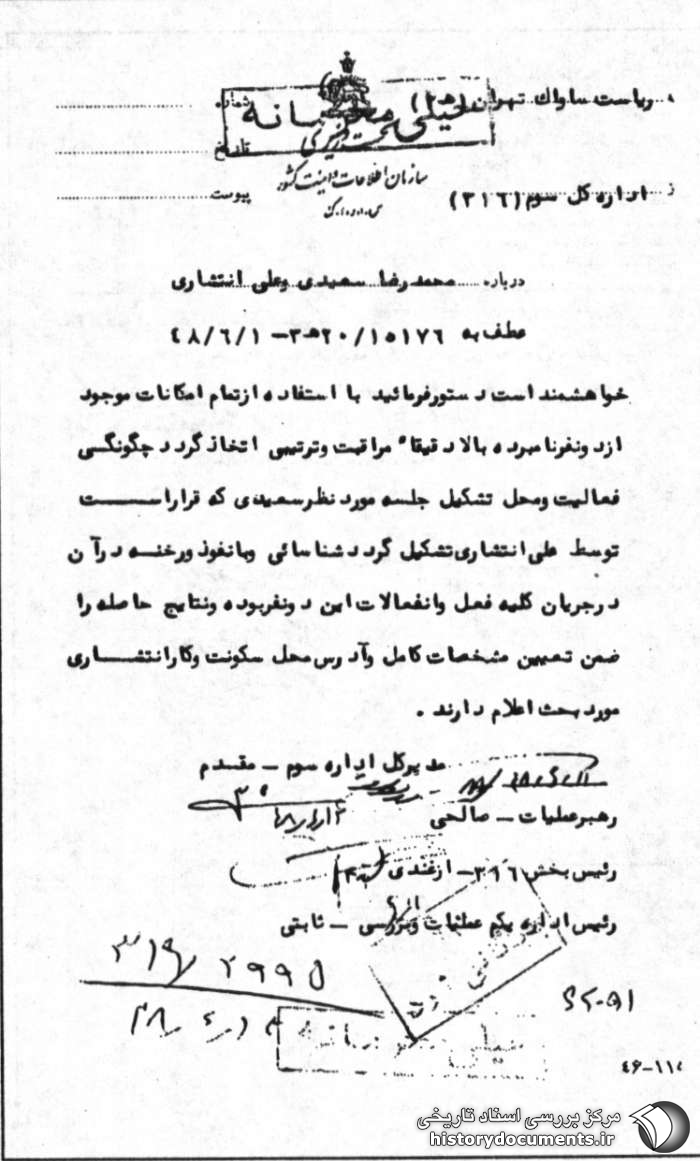 ریاست ساواک تهران
شماره
خیلی محرمانه
تاریخ
سازمان اطلاعات و امنیت کشور
اداره کل سوم (۳۱۶)
پیوست
درباره محمدرضا سعیدی وعلی انتشاری
عطف به ۲۰/۱۵۱۷۶هـ۳ – ۴۸/۶/۱
خواهشمند است دستورفرمائید با استفاده ازتمام امکانات موجود
ازدونفرنامبرده بالا دقیقاً مراقبت وترتیبی اتخاذ گردد چگونگسی
فعالیت ومحل تشکیل جلسه مورد نظرسعیدی که قراراست
توسط علی انتشاری تشکیل گردد شناسائی وبانفوذ ورخنه درآن
درجریان کلیه فعل وانفعالات این دونفربوده ونتایج حاصله را
ضمن تعیین مشخصات کامل وآدرس محل سکونت وکارانتشاری
مورد بحث اعلام دارند .
مدیرکل اداره سوم – مقدم
رهبرعملیات – صالحی
رئیس بخش ۳۱۶ – ازغندی
رئیس اداره یکم عملیات وبررسی – ثابتی
۳۱۶/ ۲۹۹۵
۴۶-۱۱۵
مرکز بررسی اسناد تاریخی
historydocuments.ir